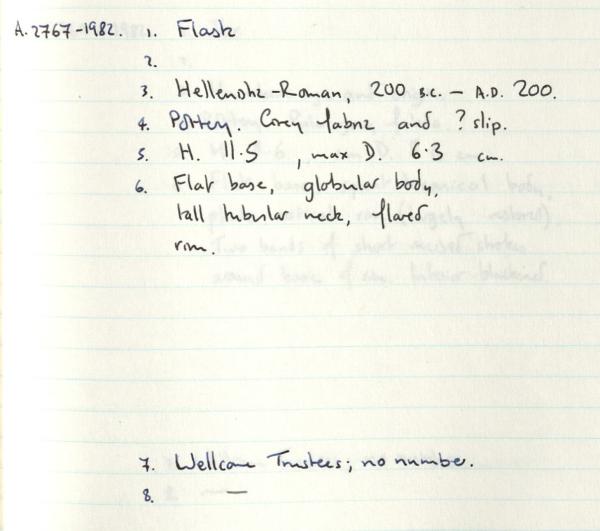 A.2767-1982. 1. Flask
2.
3. Hellenistic-Roman, 200 B.C. – A.D. 200.
4. Pottery. Grey fabric and ? slip.
5. H. 11.5 , max D. 6.3 cm.
6. Flat base, globular body,
tall tubular neck, flared
rim.
7. Wellcome Trustees; no number.
8. —